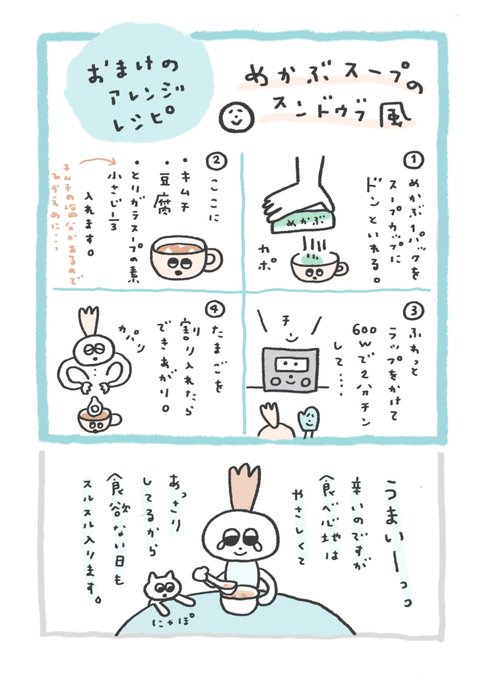 おまけの
アレンジ
レシピ
めかぶスープの
スンドゥブ風
①
めかぶ1パックを
スープカップに
ドンといれる。
めかぶ
カポ
②
ここに
・キムチ
・豆腐
・とりガラスープの素
小さじ1/3
入れます。
キムチの塩分があるので
ひかえめに…
③
ふわっと
ラップをかけて
600Wで2分チン
して……
チン
④
たまごを
割り入れたら
できあがり。
カパリ
うまいーっっ
辛いのですが
食べ心地は
やさしくて
あっさり
してるから
食欲ない日も
スルスル入ります。
にゃぽ